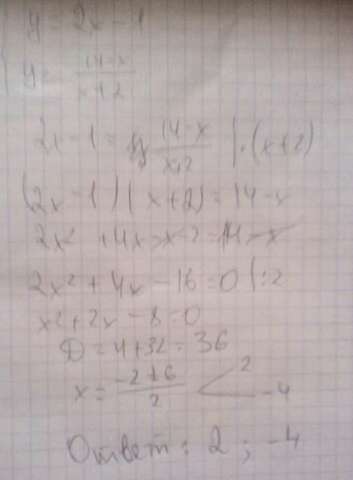 y = 2x - 1
y = (14-x)/(x+2)
2x - 1 = (14-x)/(x+2) | ·(x+2)
(2x - 1)(x+2) = 14-x
2x² + 4x - x - 2 = 14 - x
2x² + 4x - 16 = 0 | :2
x² + 2x - 8 = 0
D = 4+32 = 36
x = (-2±6)/2 < 2 -4
Ответ: 2 ; -4